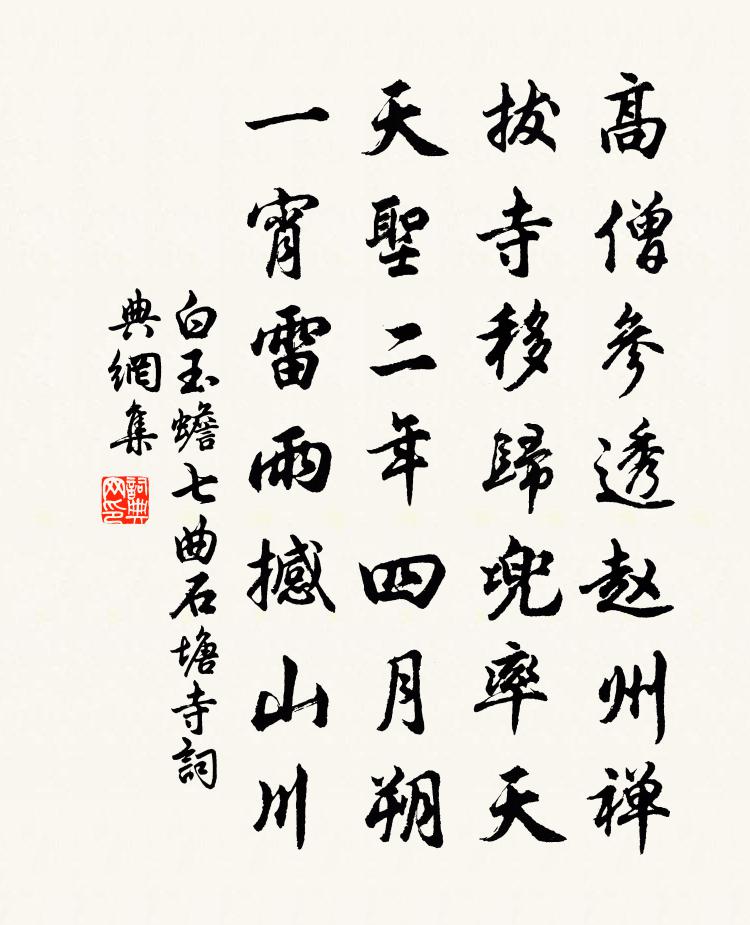 高僧參透赵州禅
拔寺移歸兜率天
天聖二年四月朔
一宵雷雨撼山川
白玉蟾七曲石塘寺詞
典網集
詞典网印